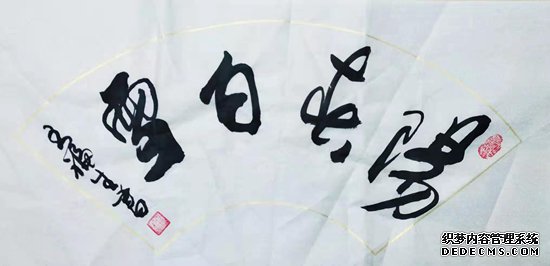 陽春白雪
织梦内容管理系统
DEDECMS.COM